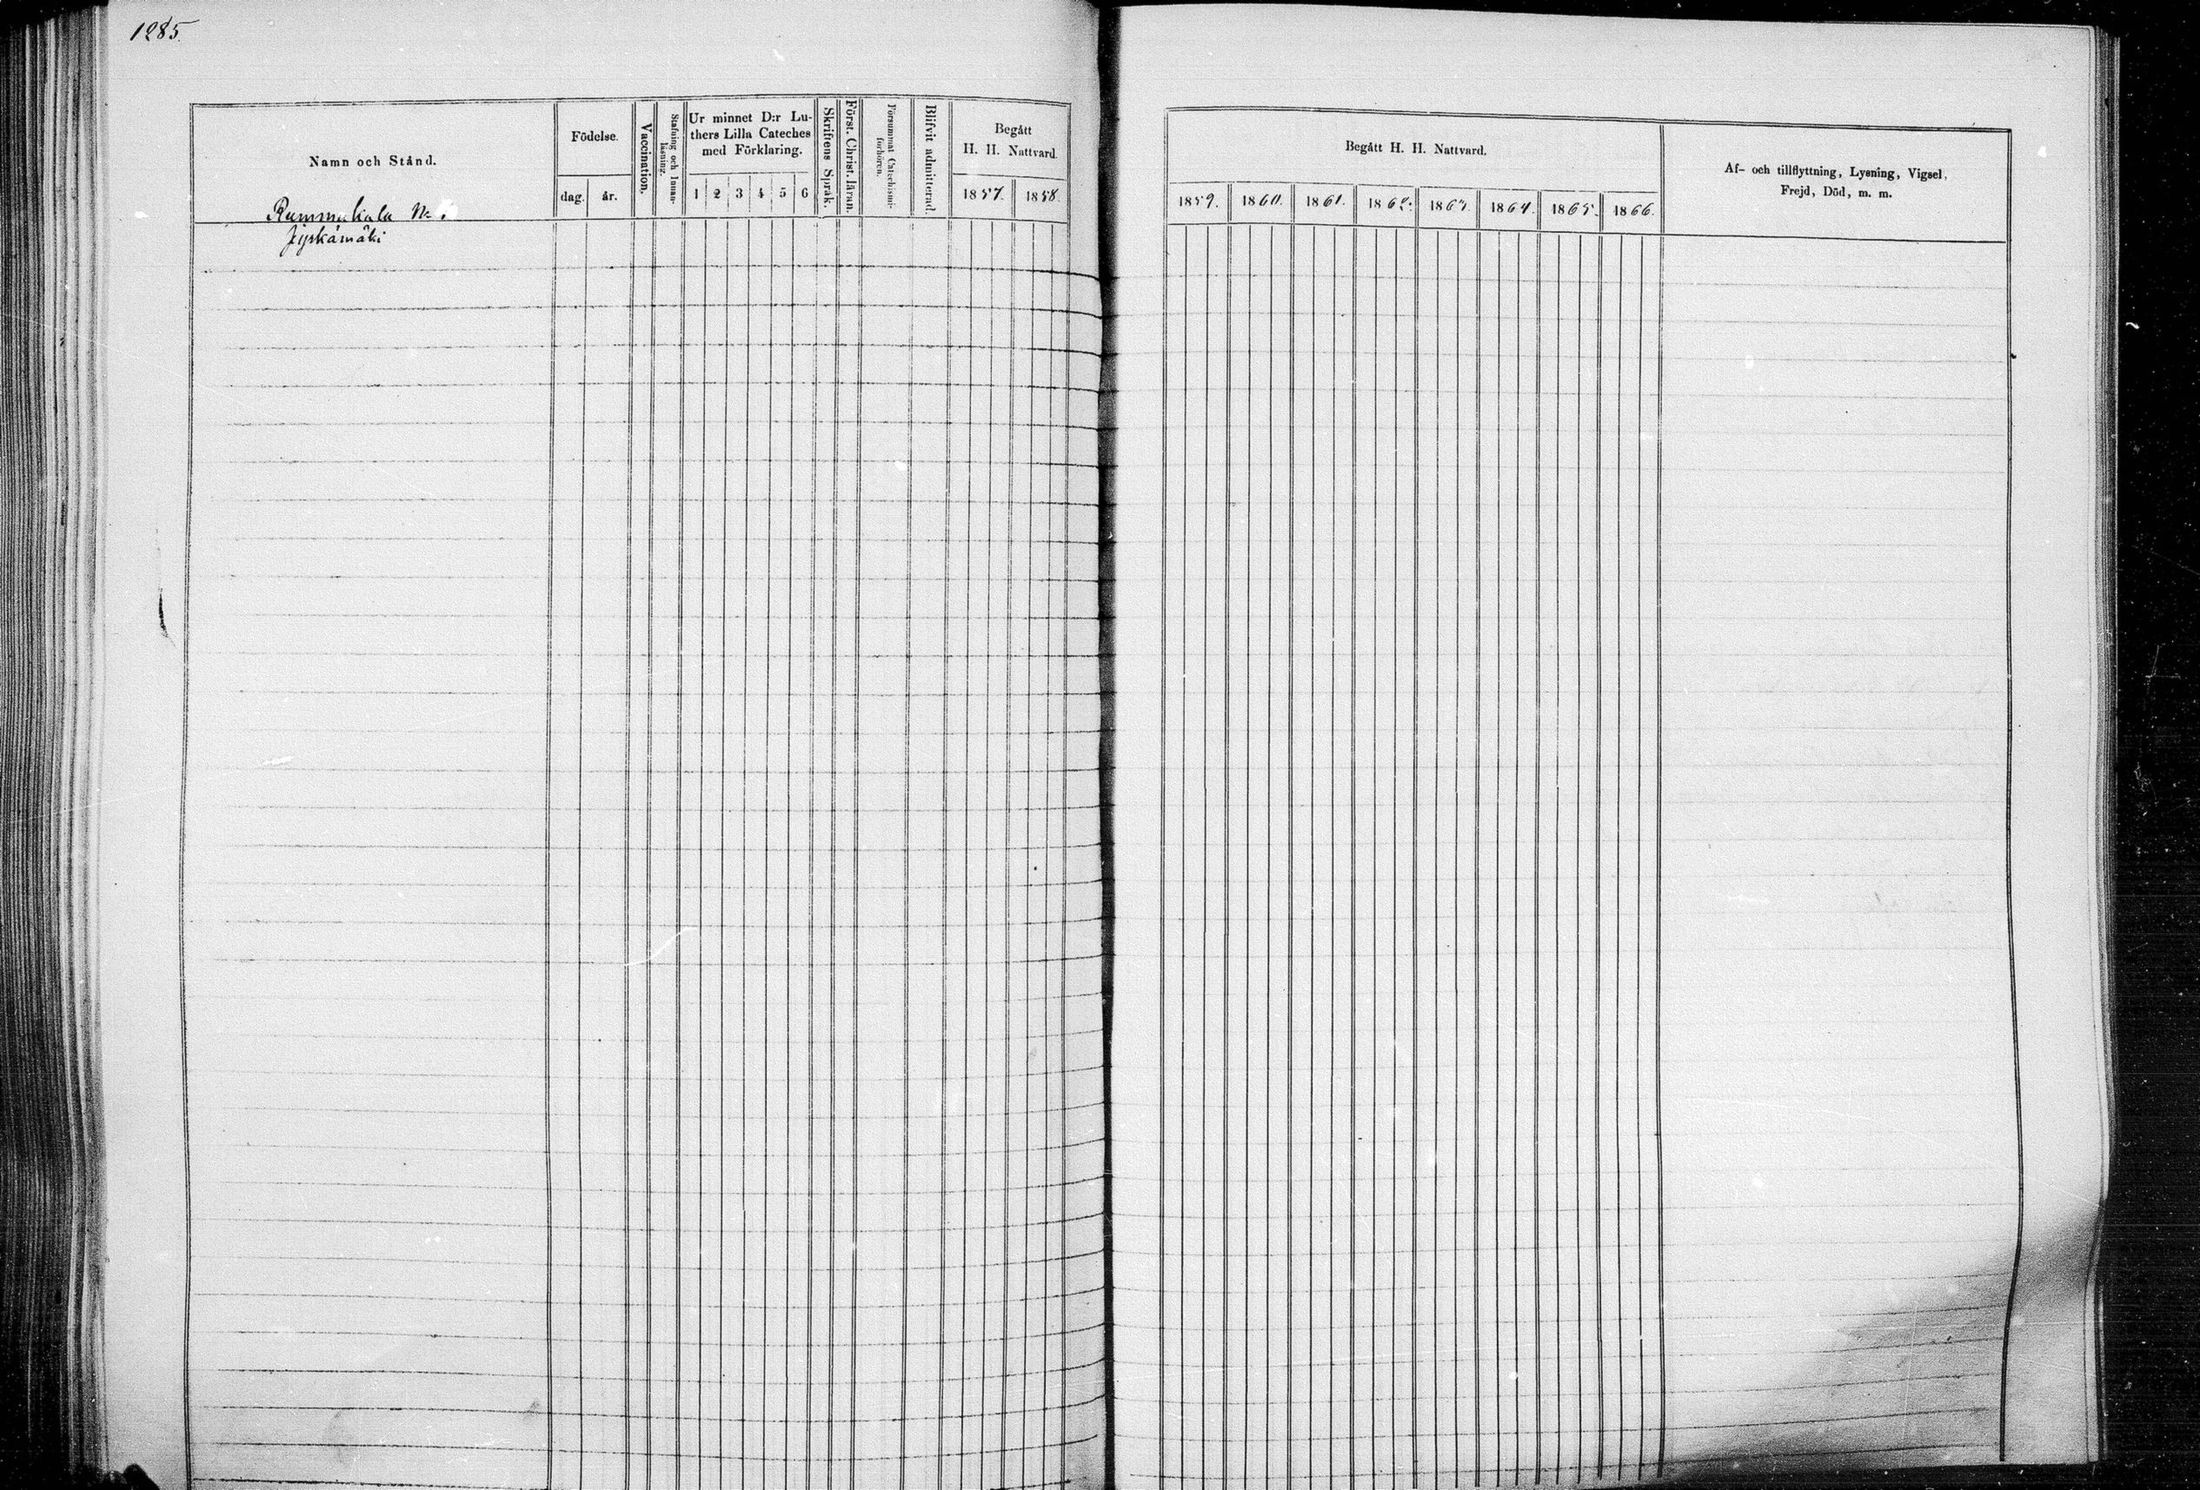 1285.
Namn och Stånd.
Rummukala No
Jyskämäki
Födelse.
dag. år.
Vaccination.
Stafning och Innan-
läsning.
Ur minnet D:r Lu-
thers Lilla Cateches
med Förklaring.
1 2 3 4 5 6
Skriftens Språk.
Först. Christ. läran.
Försummat Catechismi-
förhören.
Blifvit admitterad.
Begått
H. H. Nattvard.
1857. 1858.
Begått H. H. Nattvard.
1859. 1860. 1861. 1862. 1863. 1864. 1865. 1866.
Af- och tillflyttning, Lysning, Vigsel,
Frejd, Död, m. m.